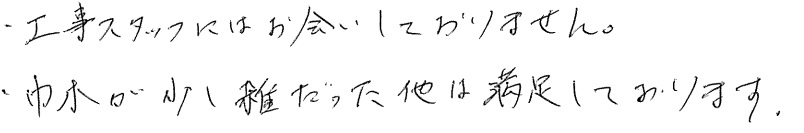 ・工事スタッフにはお会いしておりません。
・巾木が少し雑だった他は満足しております.